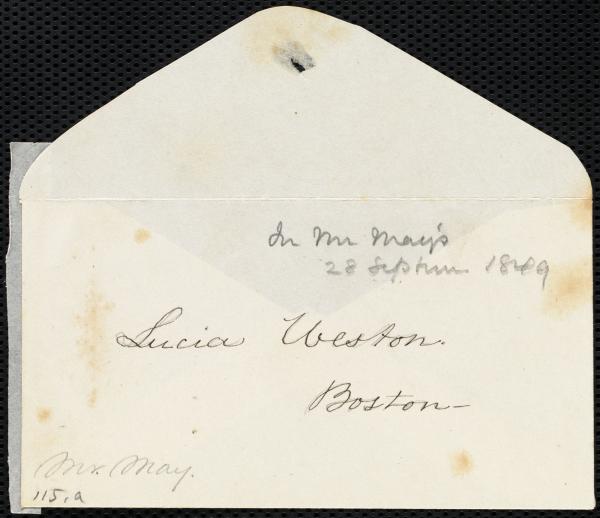 In Mr May's
28 Septem 1849
Lucia Weston.
Boston-
Mr. May.
115.a